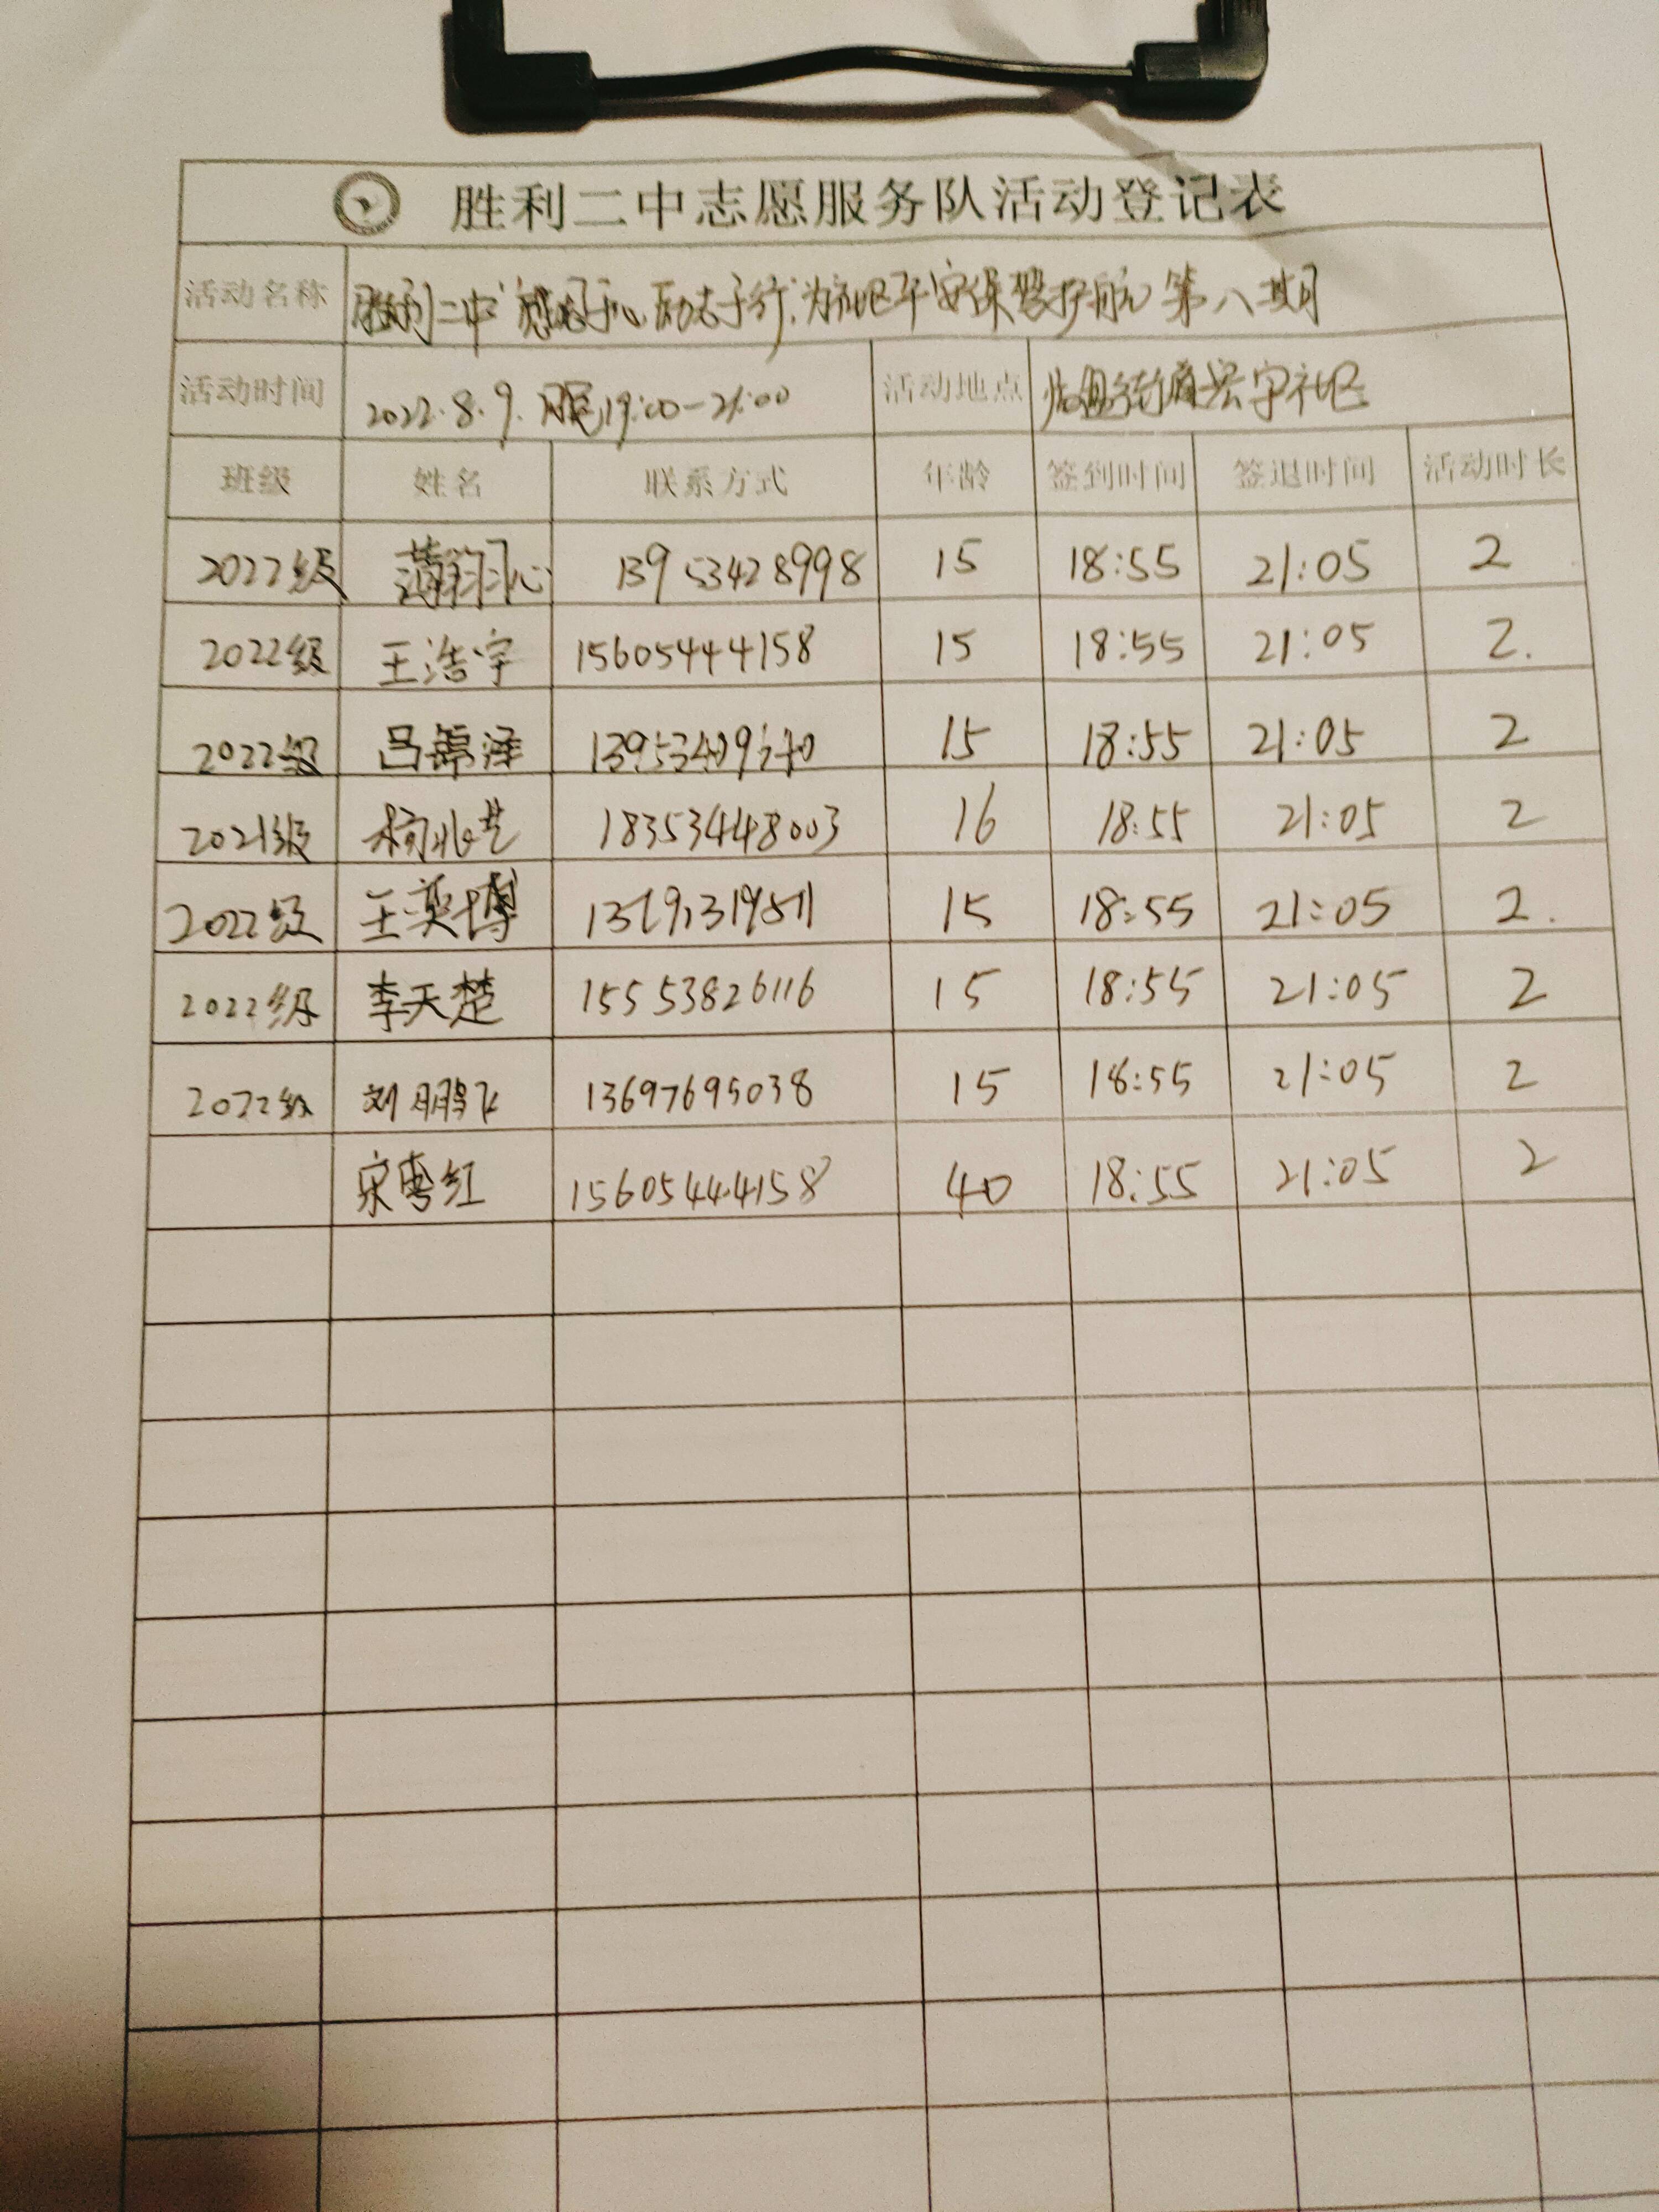 胜利二中志愿服务队活动登记表
活动名称 胜利二中"感恩于心 励志于行"为社区平安保驾护航 第八期
活动时间 2022.8.9. 19:00-21:00 活动地点 街道 宏宇社区
班级 姓名 联系方式 年龄 签到时间 签退时间 活动时长
2022级 13953428998 15 18:55 21:05 2
2022级 王浩宇 15605444158 15 18:55 21:05 2.
2022级 吕锦泽 15 18:55 21:05 2
2021级 杨兆艺 18353448003 16 18:55 21:05 2
2022级 王奕博 15 18:55 21:05 2.
2022级 李天楚 15553826116 15 18:55 21:05 2
2022级 刘鹏飞 13697695038 15 18:55 21:05 2
宋粤红 15605444158 40 18:55 21:05 2